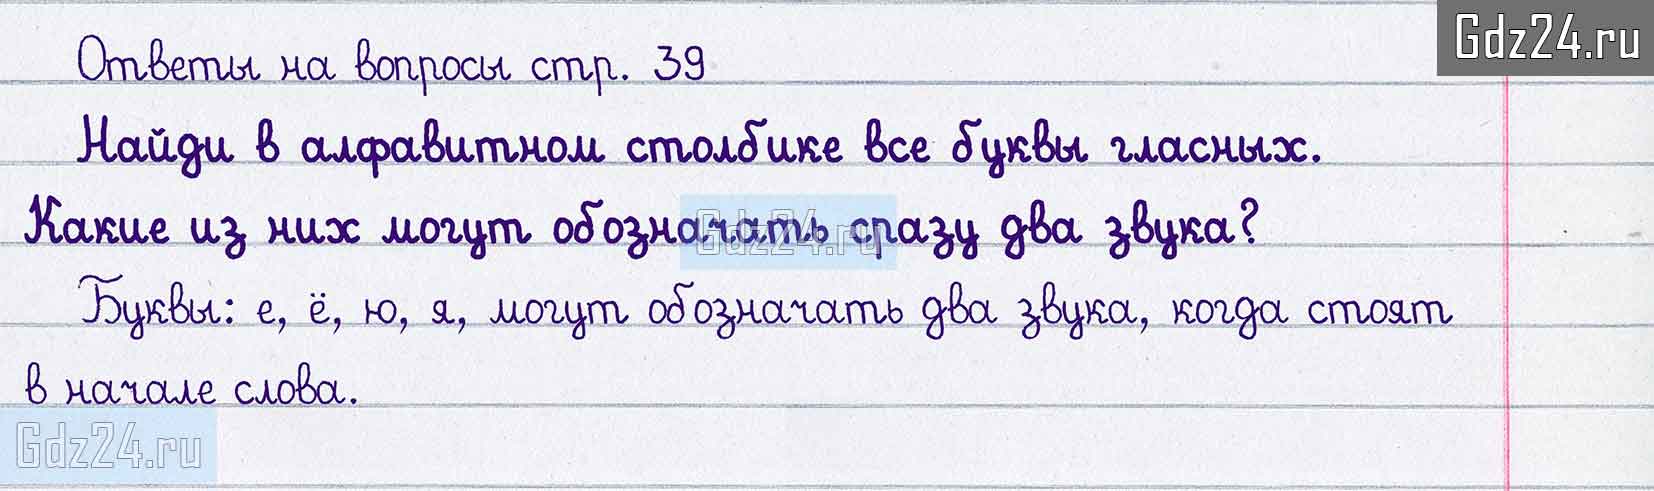 Gdz24.ru
Ответы на вопросы стр. 39
Найди в алфавитном столбике все буквы гласных.
Какие из них могут обозначать сразу два звука?
Gdz24.ru
Буквы: е, ё, ю, я, могут обозначать два звука, когда стоят
в начале слова.
Gdz24.ru